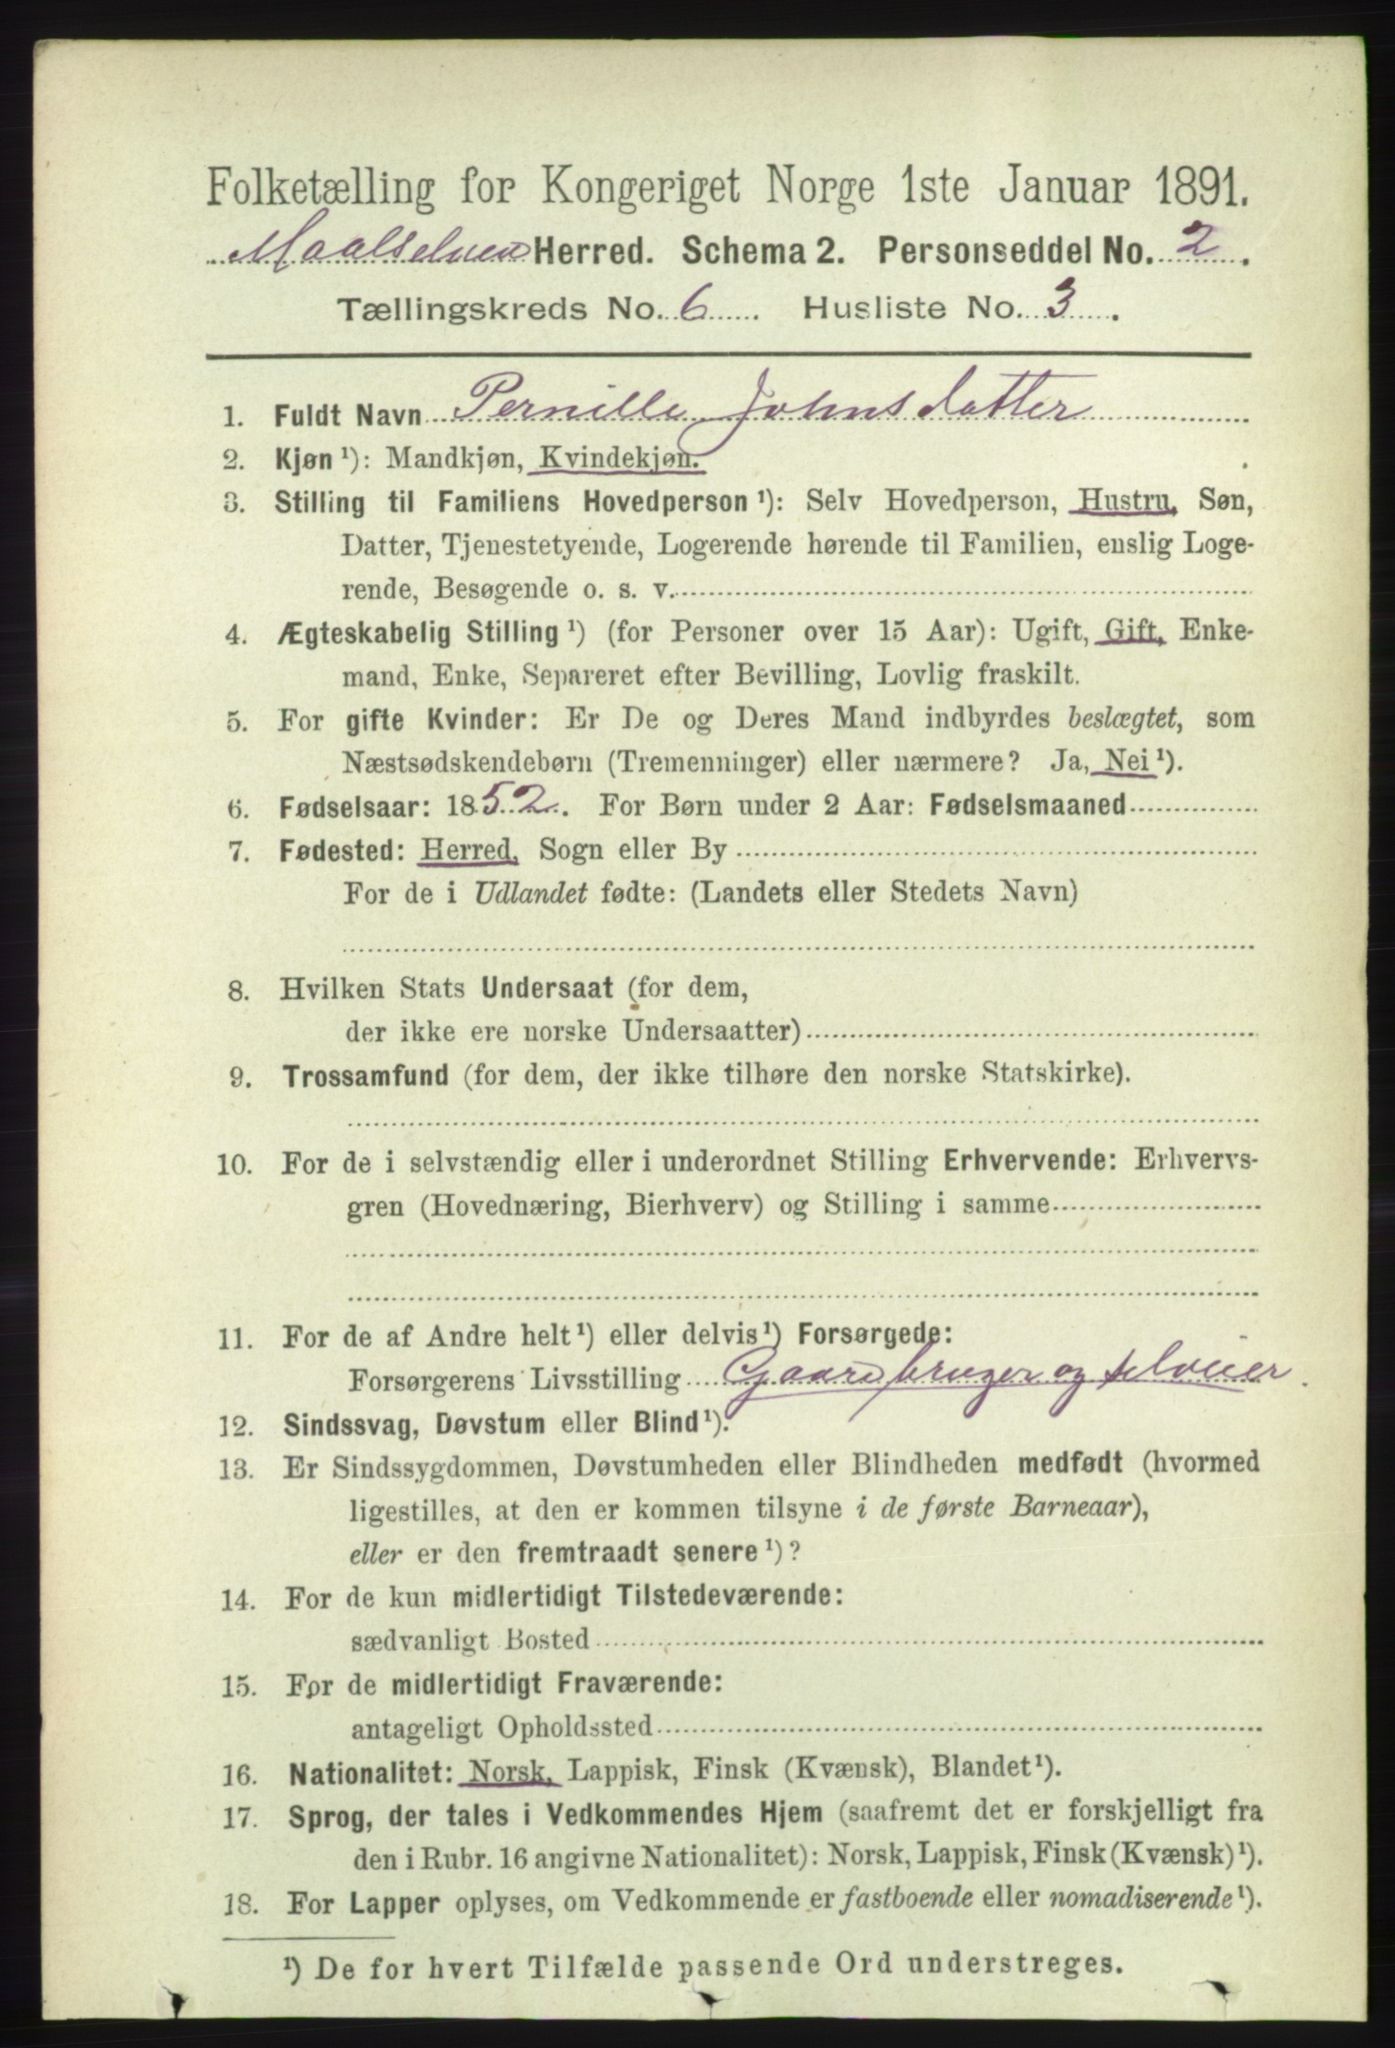 Folketælling for Kongeriget Norge 1ste Januar 1891.
Maalselven Herred. Schema 2. Personseddel No. 2.
Tællingskreds No. 6. Husliste No. 3.
1. Fuldt Navn Pernille Johnsdatter
2. Kjøn ¹): Mandkjøn, Kvindekjøn.
3. Stilling til Familiens Hovedperson ¹): Selv Hovedperson, Hustru, Søn,
Datter, Tjenestetyende, Logerende hørende til Familien, enslig Loge-
rende, Besøgende o. s. v.
4. Ægteskabelig Stilling ¹) (for Personer over 15 Aar): Ugift, Gift, Enke-
mand, Enke, Separeret efter Bevilling, Lovlig fraskilt.
5. For gifte Kvinder: Er De og Deres Mand indbyrdes beslægtet, som
Næstsødskendebørn (Tremenninger) eller nærmere? Ja, Nei ¹).
6. Fødselsaar: 1852. For Børn under 2 Aar: Fødselsmaaned
7. Fødested: Herred, Sogn eller By
For de i Udlandet fødte: (Landets eller Stedets Navn)
8. Hvilken Stats Undersaat (for dem,
der ikke ere norske Undersaatter)
9. Trossamfund (for dem, der ikke tilhøre den norske Statskirke).
10. For de i selvstændig eller i underordnet Stilling Erhvervende: Erhvervs-
gren (Hovednæring, Bierhverv) og Stilling i samme
11. For de af Andre helt ¹) eller delvis ¹) Forsørgede:
Forsørgerens Livsstilling Gaardbruger og selveier.
12. Sindssvag, Døvstum eller Blind ¹).
13. Er Sindssygdommen, Døvstumheden eller Blindheden medfødt (hvormed
ligestilles, at den er kommen tilsyne i de første Barneaar),
eller er den fremtraadt senere ¹)?
14. For de kun midlertidigt Tilstedeværende:
sædvanligt Bosted
15. For de midlertidigt Fraværende:
antageligt Opholdssted
16. Nationalitet: Norsk, Lappisk, Finsk (Kvænsk), Blandet ¹).
17. Sprog, der tales i Vedkommendes Hjem (saafremt det er forskjelligt fra
den i Rubr. 16 angivne Nationalitet): Norsk, Lappisk, Finsk (Kvænsk) ¹).
18. For Lapper oplyses, om Vedkommende er fastboende eller nomadiserende ¹).
¹) De for hvert Tilfælde passende Ord understreges.